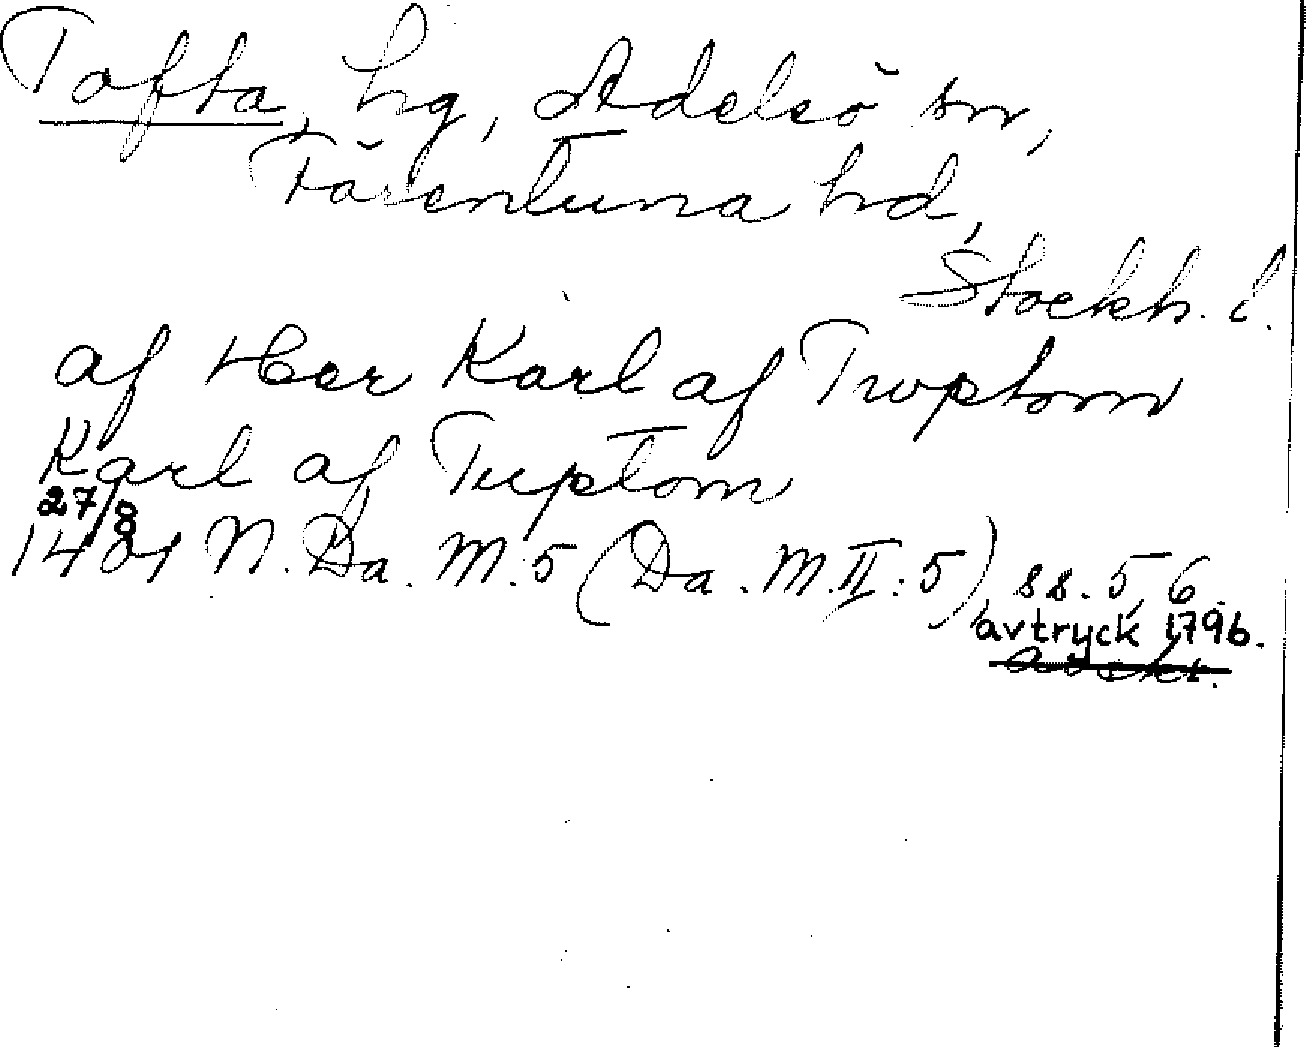 Tofta, hg, Adelsö sn,
Färentuna hd,
Stockh. l.
af Her Karl af Twptom
Karl af Tuptom
27/8
1401 N. Da. M. 5 (Da. M. II: 5), ss. 5, 6.
avtryck 1796.